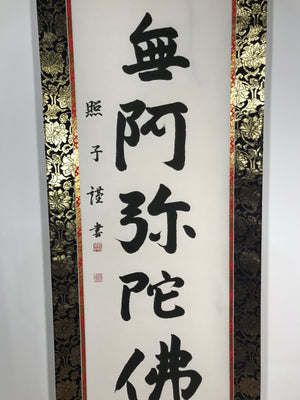 無阿弥陀佛
照子謹書